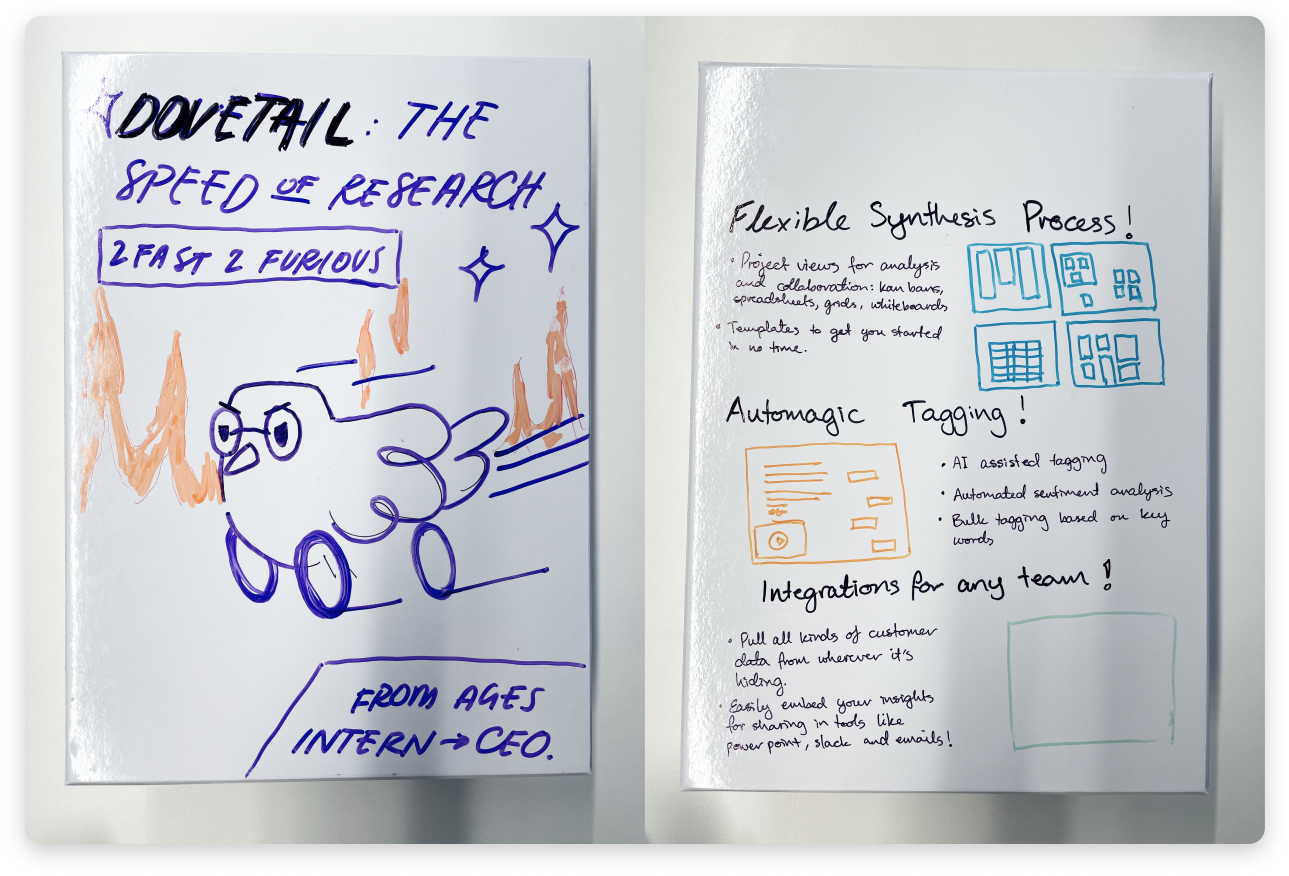 DOVETAIL: THE
SPEED OF RESEARCH
2 FAST 2 FURIOUS
FROM AGES
INTERN → CEO.
Flexible Synthesis Process!
• Project views for analysis
and collaboration: kan bans,
spreadsheets, grids, whiteboards
• Templates to get you started
in no time.
Automagic Tagging!
• AI assisted tagging
• Automated sentiment analysis
• Bulk tagging based on key
words
Integrations for any team!
• Pull all kinds of customer
data from wherever it's
hiding.
• Easily embed your insights
for sharing in tools like
power point, slack and emails!